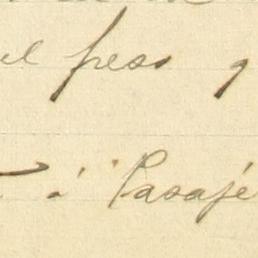 el peso q
á Pasaje